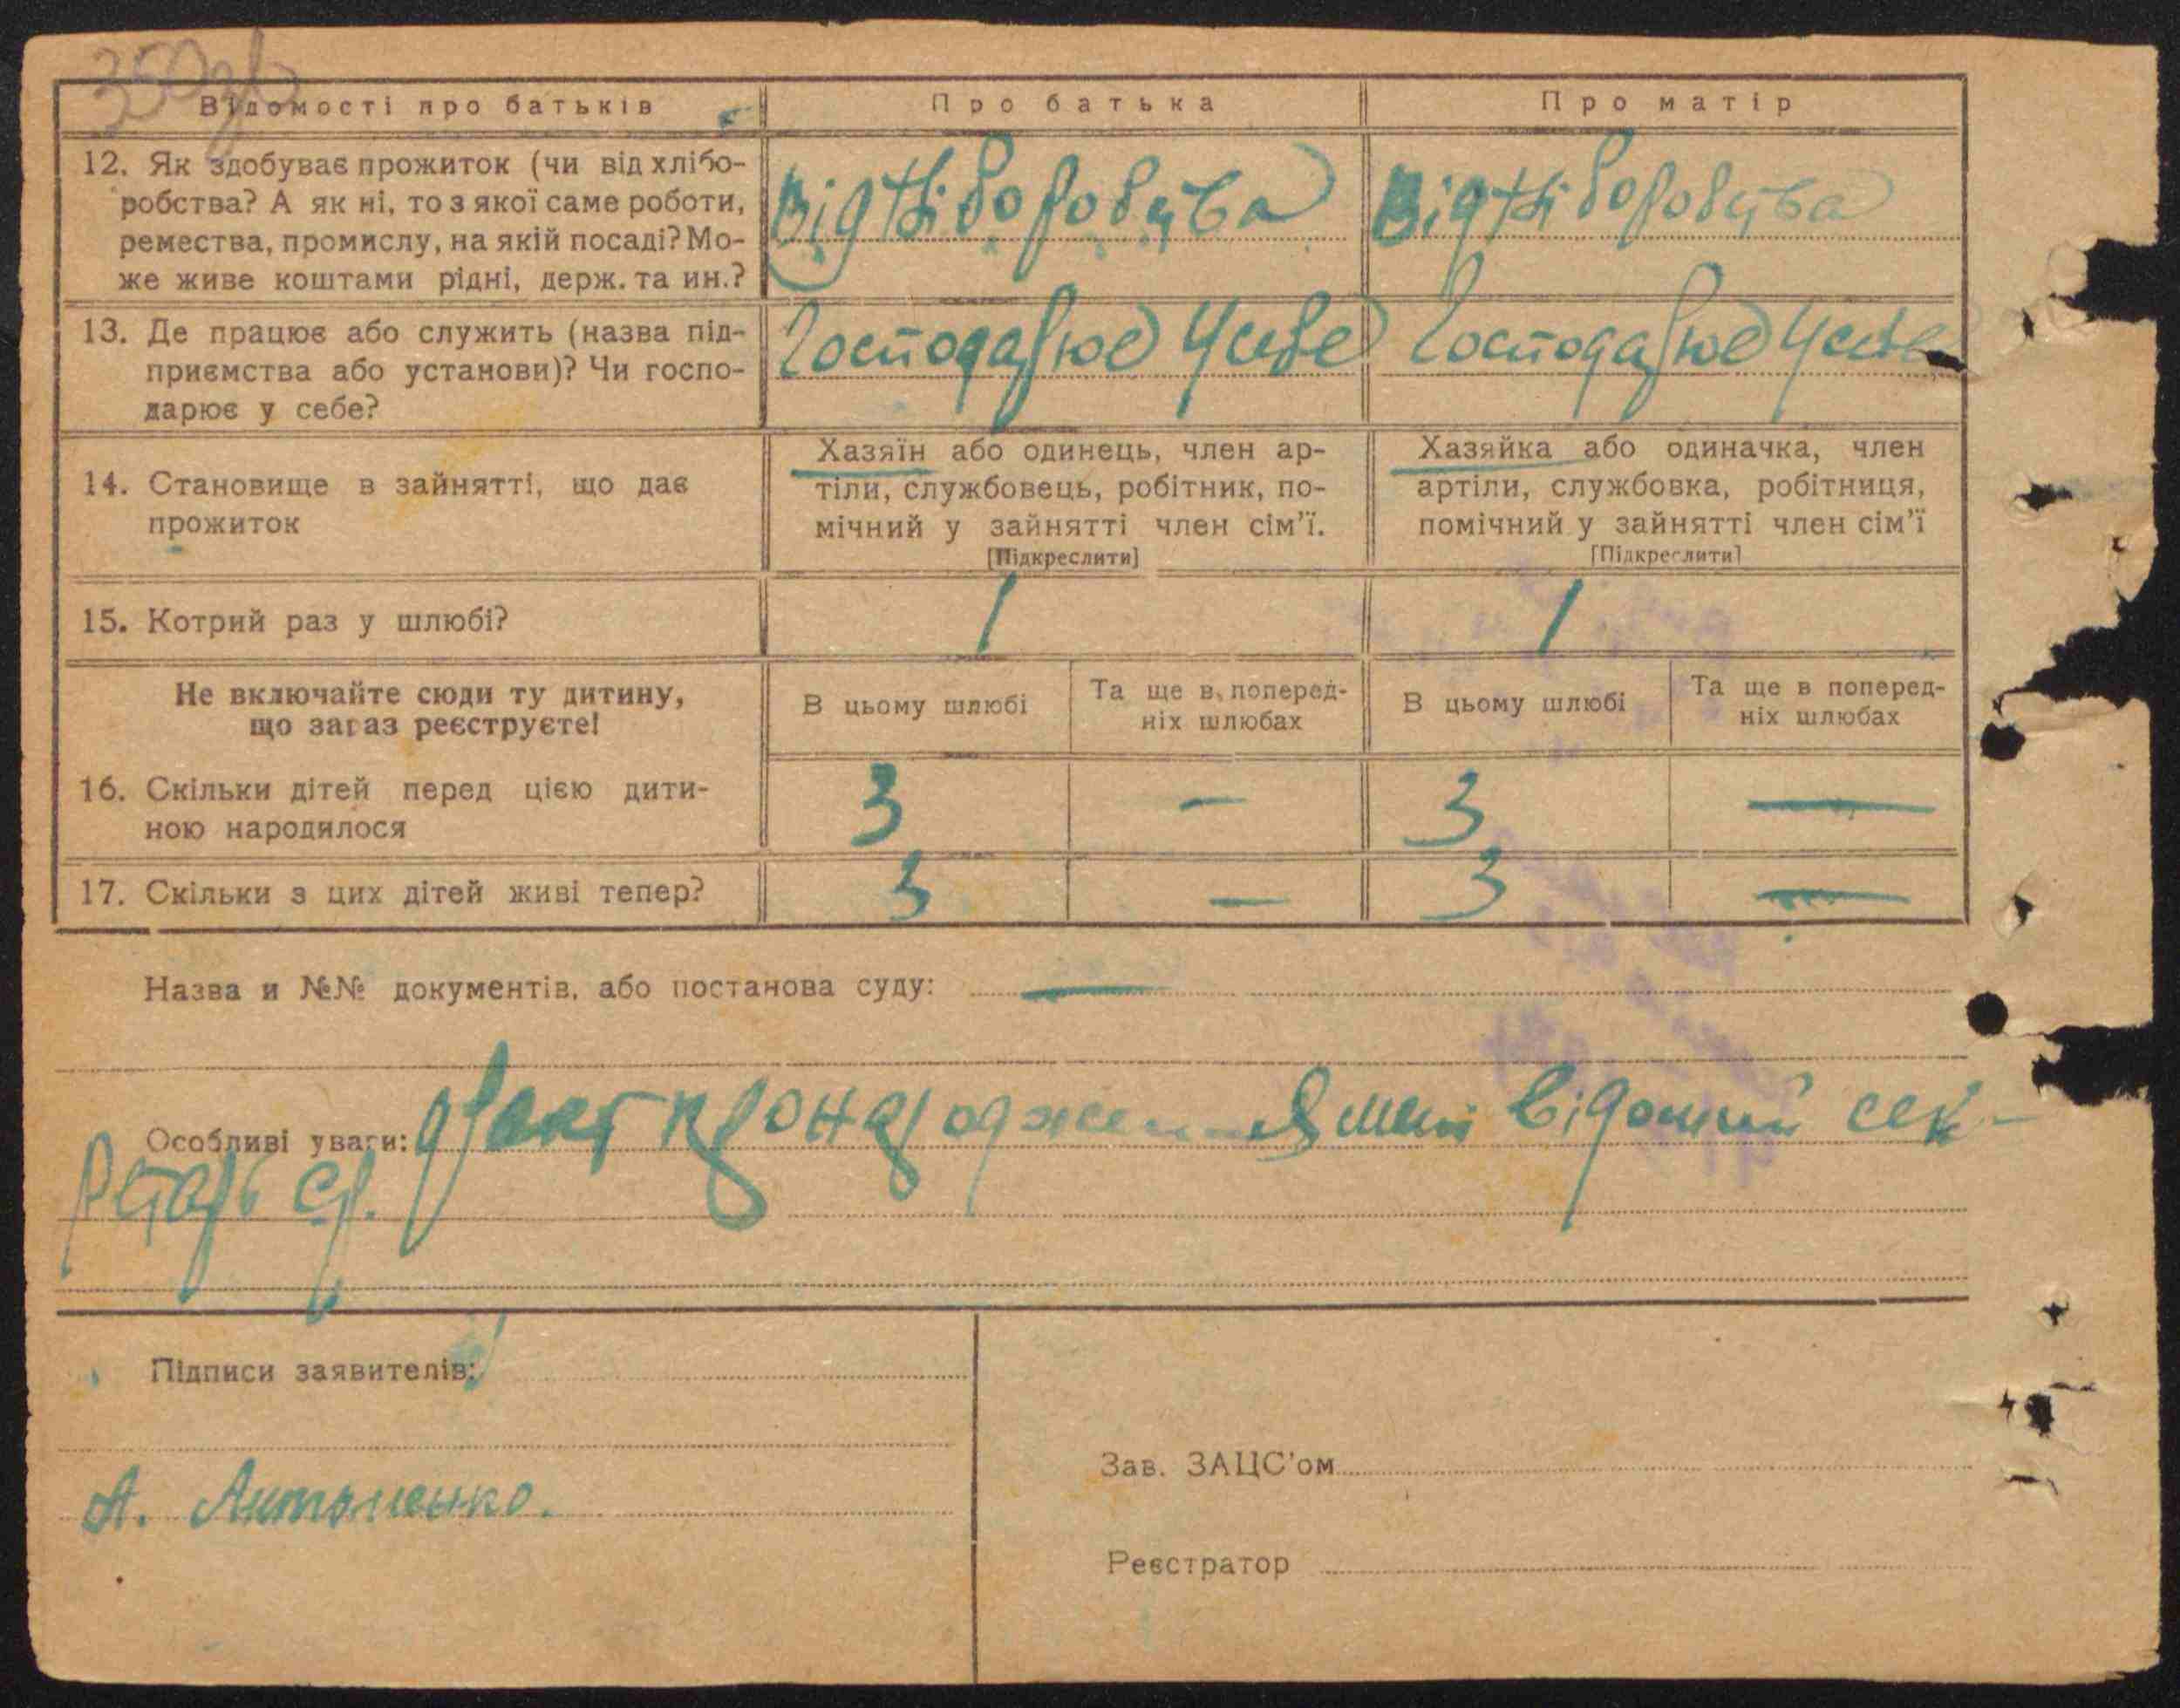 350зв
Відомості про батьків
Про батька
Про матір
12. Як здобуває прожиток (чи від хлібо-
робства? А як ні, то з якої саме роботи,
ремества, промислу, на якій посаді? Мо-
же живе коштами рідні, держ. та ин.?
Від хліборобства
Від хліборобства
13. Де працює або служить (назва під-
приємства або установи)? Чи госпо-
дарює у себе?
Господарює у себе
Господарює у себе
14. Становище в зайнятті, що дає
прожиток
Хазяїн або одинець, член ар-
тіли, службовець, робітник, по-
мічний у зайнятті член сім'ї.
[Підкреслити]
Хазяйка або одиначка, член
артіли, службовка, робітниця,
помічний у зайнятті член сім'ї
[Підкреслити]
15. Котрий раз у шлюбі?
1
1
Не включайте сюди ту дитину,
що зараз реєструєте!
В цьому шлюбі
Та ще в поперед-
ніх шлюбах
В цьому шлюбі
Та ще в поперед-
ніх шлюбах
16. Скільки дітей перед цією дити-
ною народилося
3
—
3
—
17. Скільки з цих дітей живі тепер?
3
—
3
—
Назва и №№ документів, або постанова суду: —
Особливі уваги: факт про народження мені відомий сек-
ретарь с/р.
Підписи заявителів:
А. Антоненко.
Зав. ЗАЦС'ом
Реєстратор